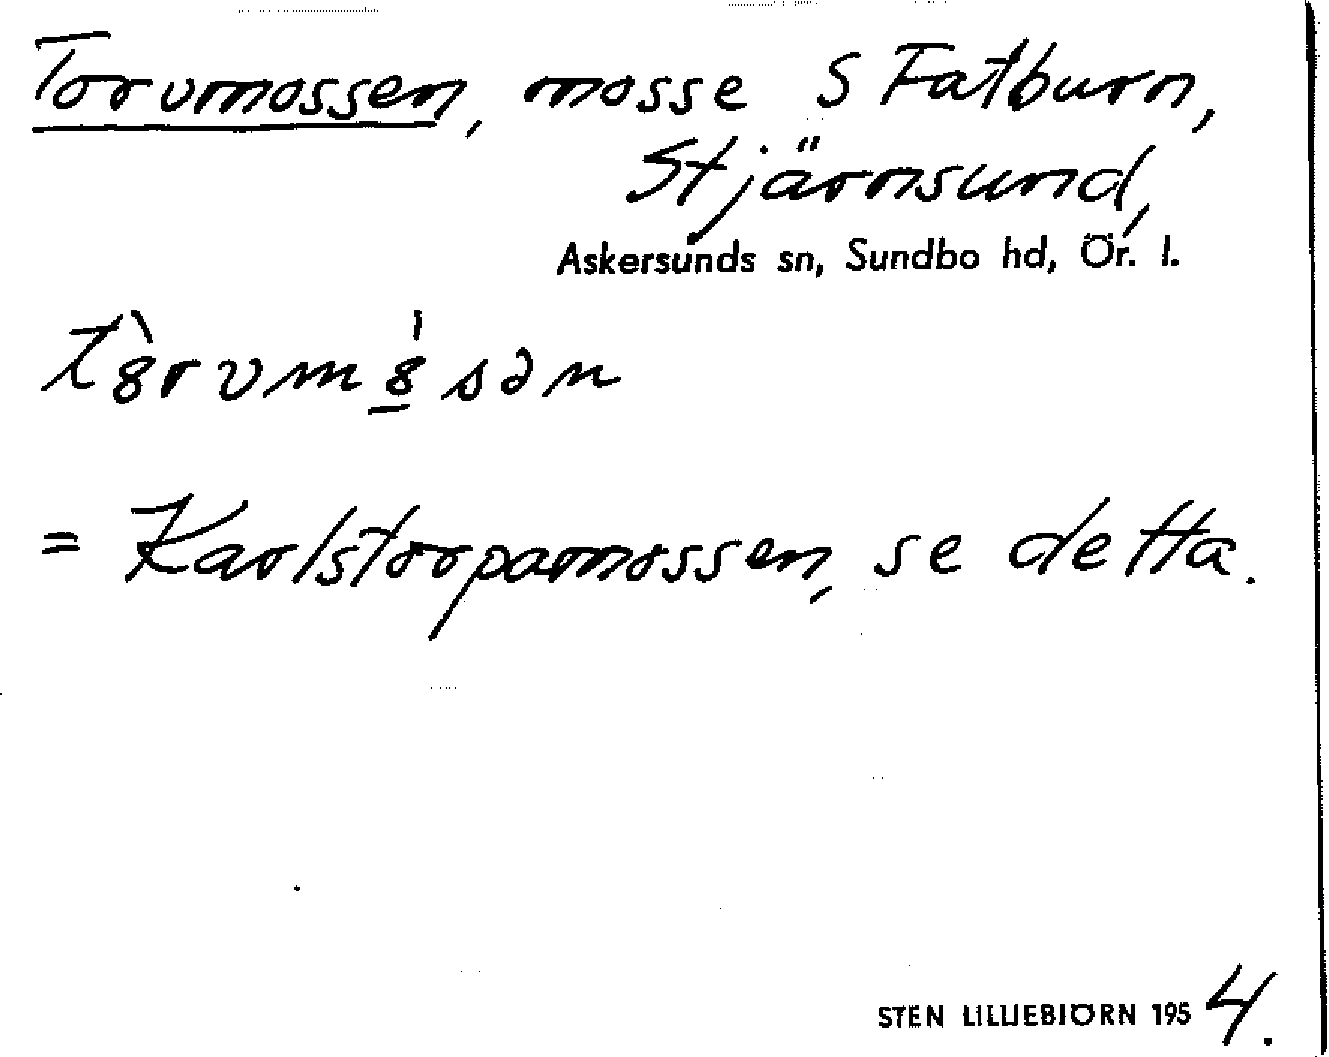 Torvmossen, mosse S Fatburn,
Stjärnsund,
Askersunds sn, Sundbo hd, Ör. l.
= Karlstorpamossen, se detta.
STEN LILLIEBJÖRN 1954.